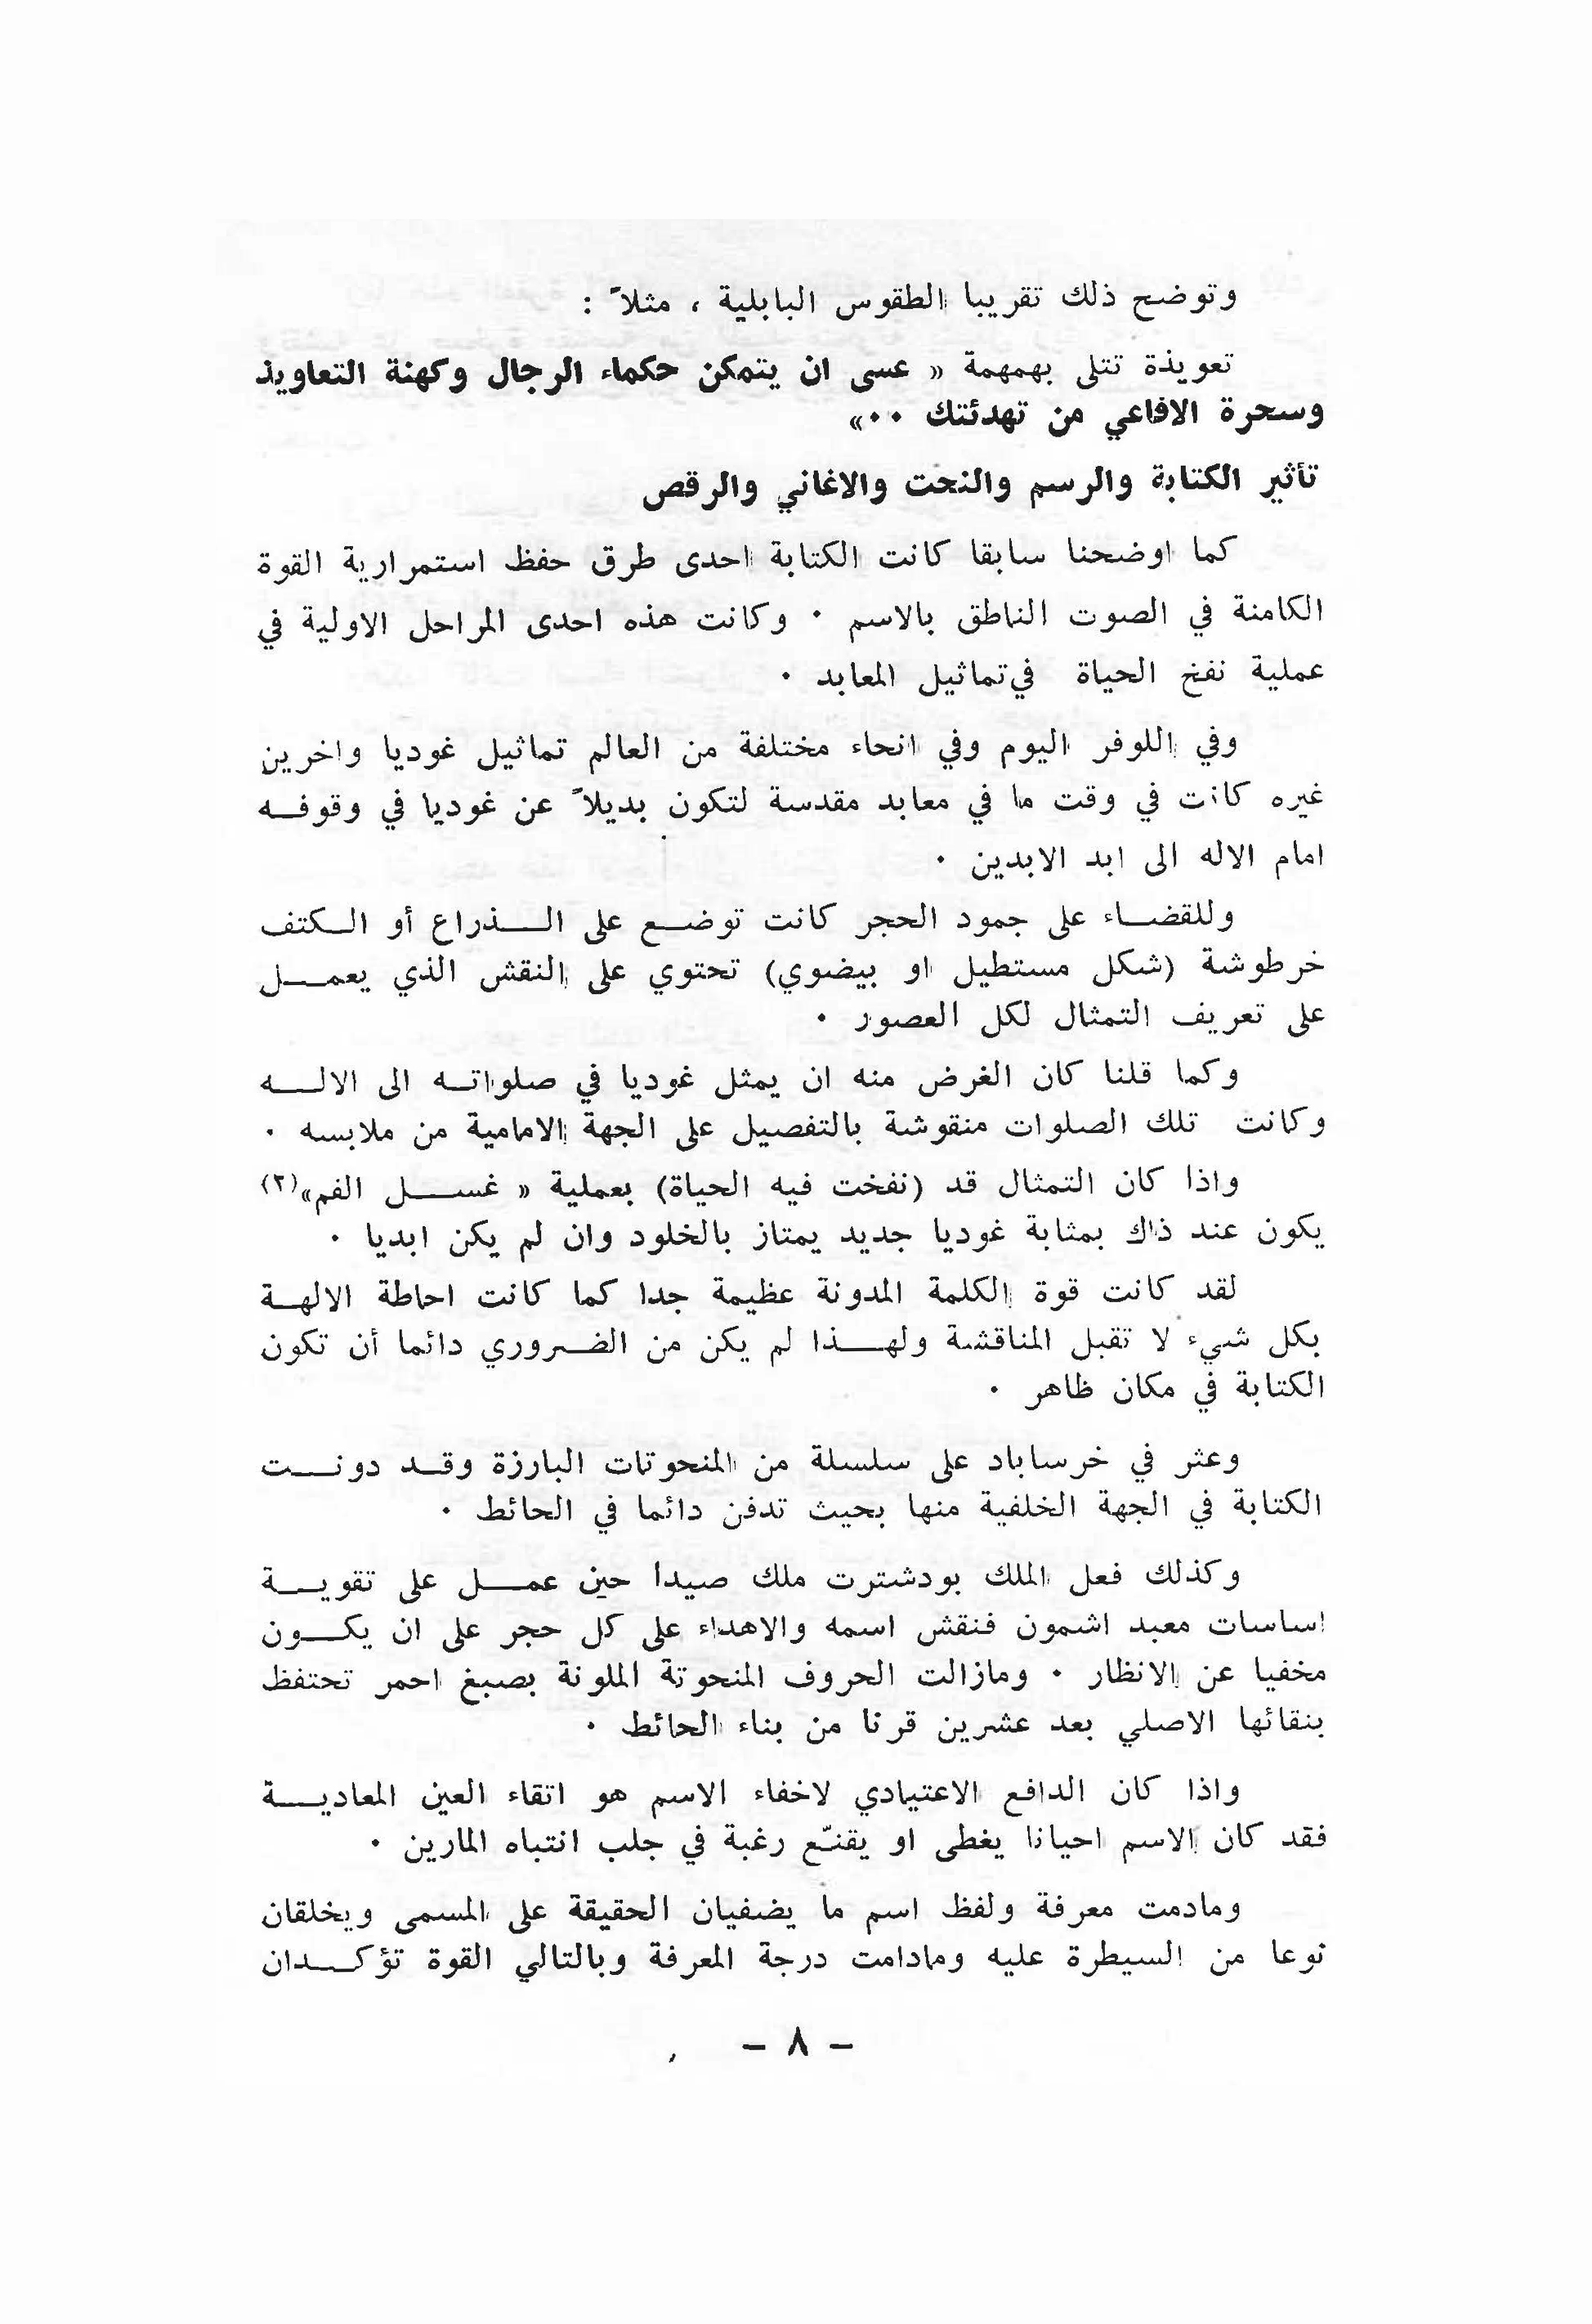 وتوضح ذلك تقريبا الطقوس البابلية ، مثلاً :
تعويذة تتلى بهمهمة « عسى ان يتمكن حكماء الرجال وكهنة التعاويذ
وسحرة الافاعي من تهدئتك ٠٠»
تأثير الكتابة والرسم والنحت والاغاني والرقص
كما اوضحنا سابقا كانت الكتابة احدى طرق حفظ استمرارية القوة
الكامنة في الصوت الناطق بالاسم ٠ وكانت هذه احدى المراحل الاولية في
عملية نفخ الحياة في تماثيل المعابد ٠
وفي اللوفر اليوم وفي انحاء مختلفة من العالم تماثيل غوديا واخرين
غيره كانت في وقت ما في معابد مقدسة لتكون بديلاً عن غوديا في وقوفـه
امام الاله الى ابد الابدين ٠
وللقضـاء على جمود الحجر كانت توضـع على الـذراع أو الـكتف
خرطوشة (شكل مستطيل او بيضوي) تحتوي على النقش الذي يعمـل
على تعريف التمثال لكل العصور ٠
وكما قلنا كان الغرض منه ان يمثل غوديا في صلواتـه الى الالـه
وكانت تلك الصلوات منقوشة بالتفصيل على الجهة الامامية من ملابسه ٠
واذا كان التمثال قد (نفخت فيه الحياة) بعملية « غسـل الفم»(٢)
يكون عند ذاك بمثابة غوديا جديد يمتاز بالخلود وان لم يكن ابديا ٠
لقد كانت قوة الكلمة المدونة عظيمة جدا كما كانت احاطة الالهـة
بكل شيء لا تقبل المناقشة ولهـذا لم يكن من الضـروري دائما أن تكون
الكتابة في مكان ظاهر ٠
وعثر في خرساباد على سلسلة من المنحوتات البارزة وقـد دونـت
الكتابة في الجهة الخلفية منها بحيث تدفن دائما في الحائط ٠
وكذلك فعل الملك بودشترت ملك صيدا حين عمـل على تقويـة
اساسات معبد اشمون فنقش اسمه والاهداء على كل حجر على ان يكـون
مخفيا عن الانظار ٠ ومازالت الحروف المنحوتة الملونة بصبغ احمر تحتفظ
بنقائها الاصلي بعد عشرين قرنا من بناء الحائط ٠
واذا كان الدافع الاعتيادي لاخفاء الاسم هو اتقاء العين المعاديـة
فقد كان الاسم احيانا يغطى او يقنّع رغبة في جلب انتباه المارين ٠
ومادمت معرفة ولفظ اسم ما يضفيان الحقيقة على المسمى ويخلقان
نوعا من السيطرة عليه ومادامت درجة المعرفة وبالتالي القوة تؤكـدان
– ٨ –